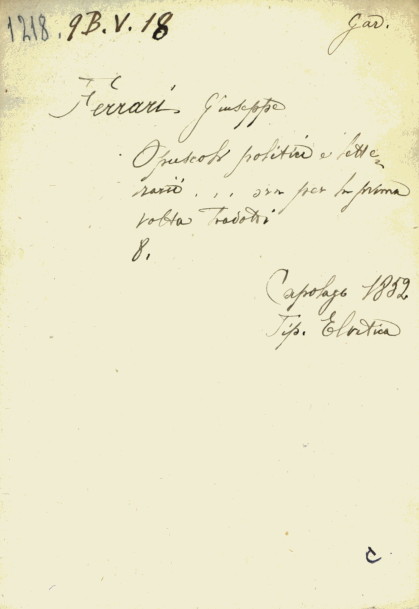 1218. 9B.V.18 Gar.
Ferrari Giuseppe
Opuscoli politici e lette-
rarii ... ora per la prima
volta tradotti
8.
Capolago 1852
Tip. Elvetica
C